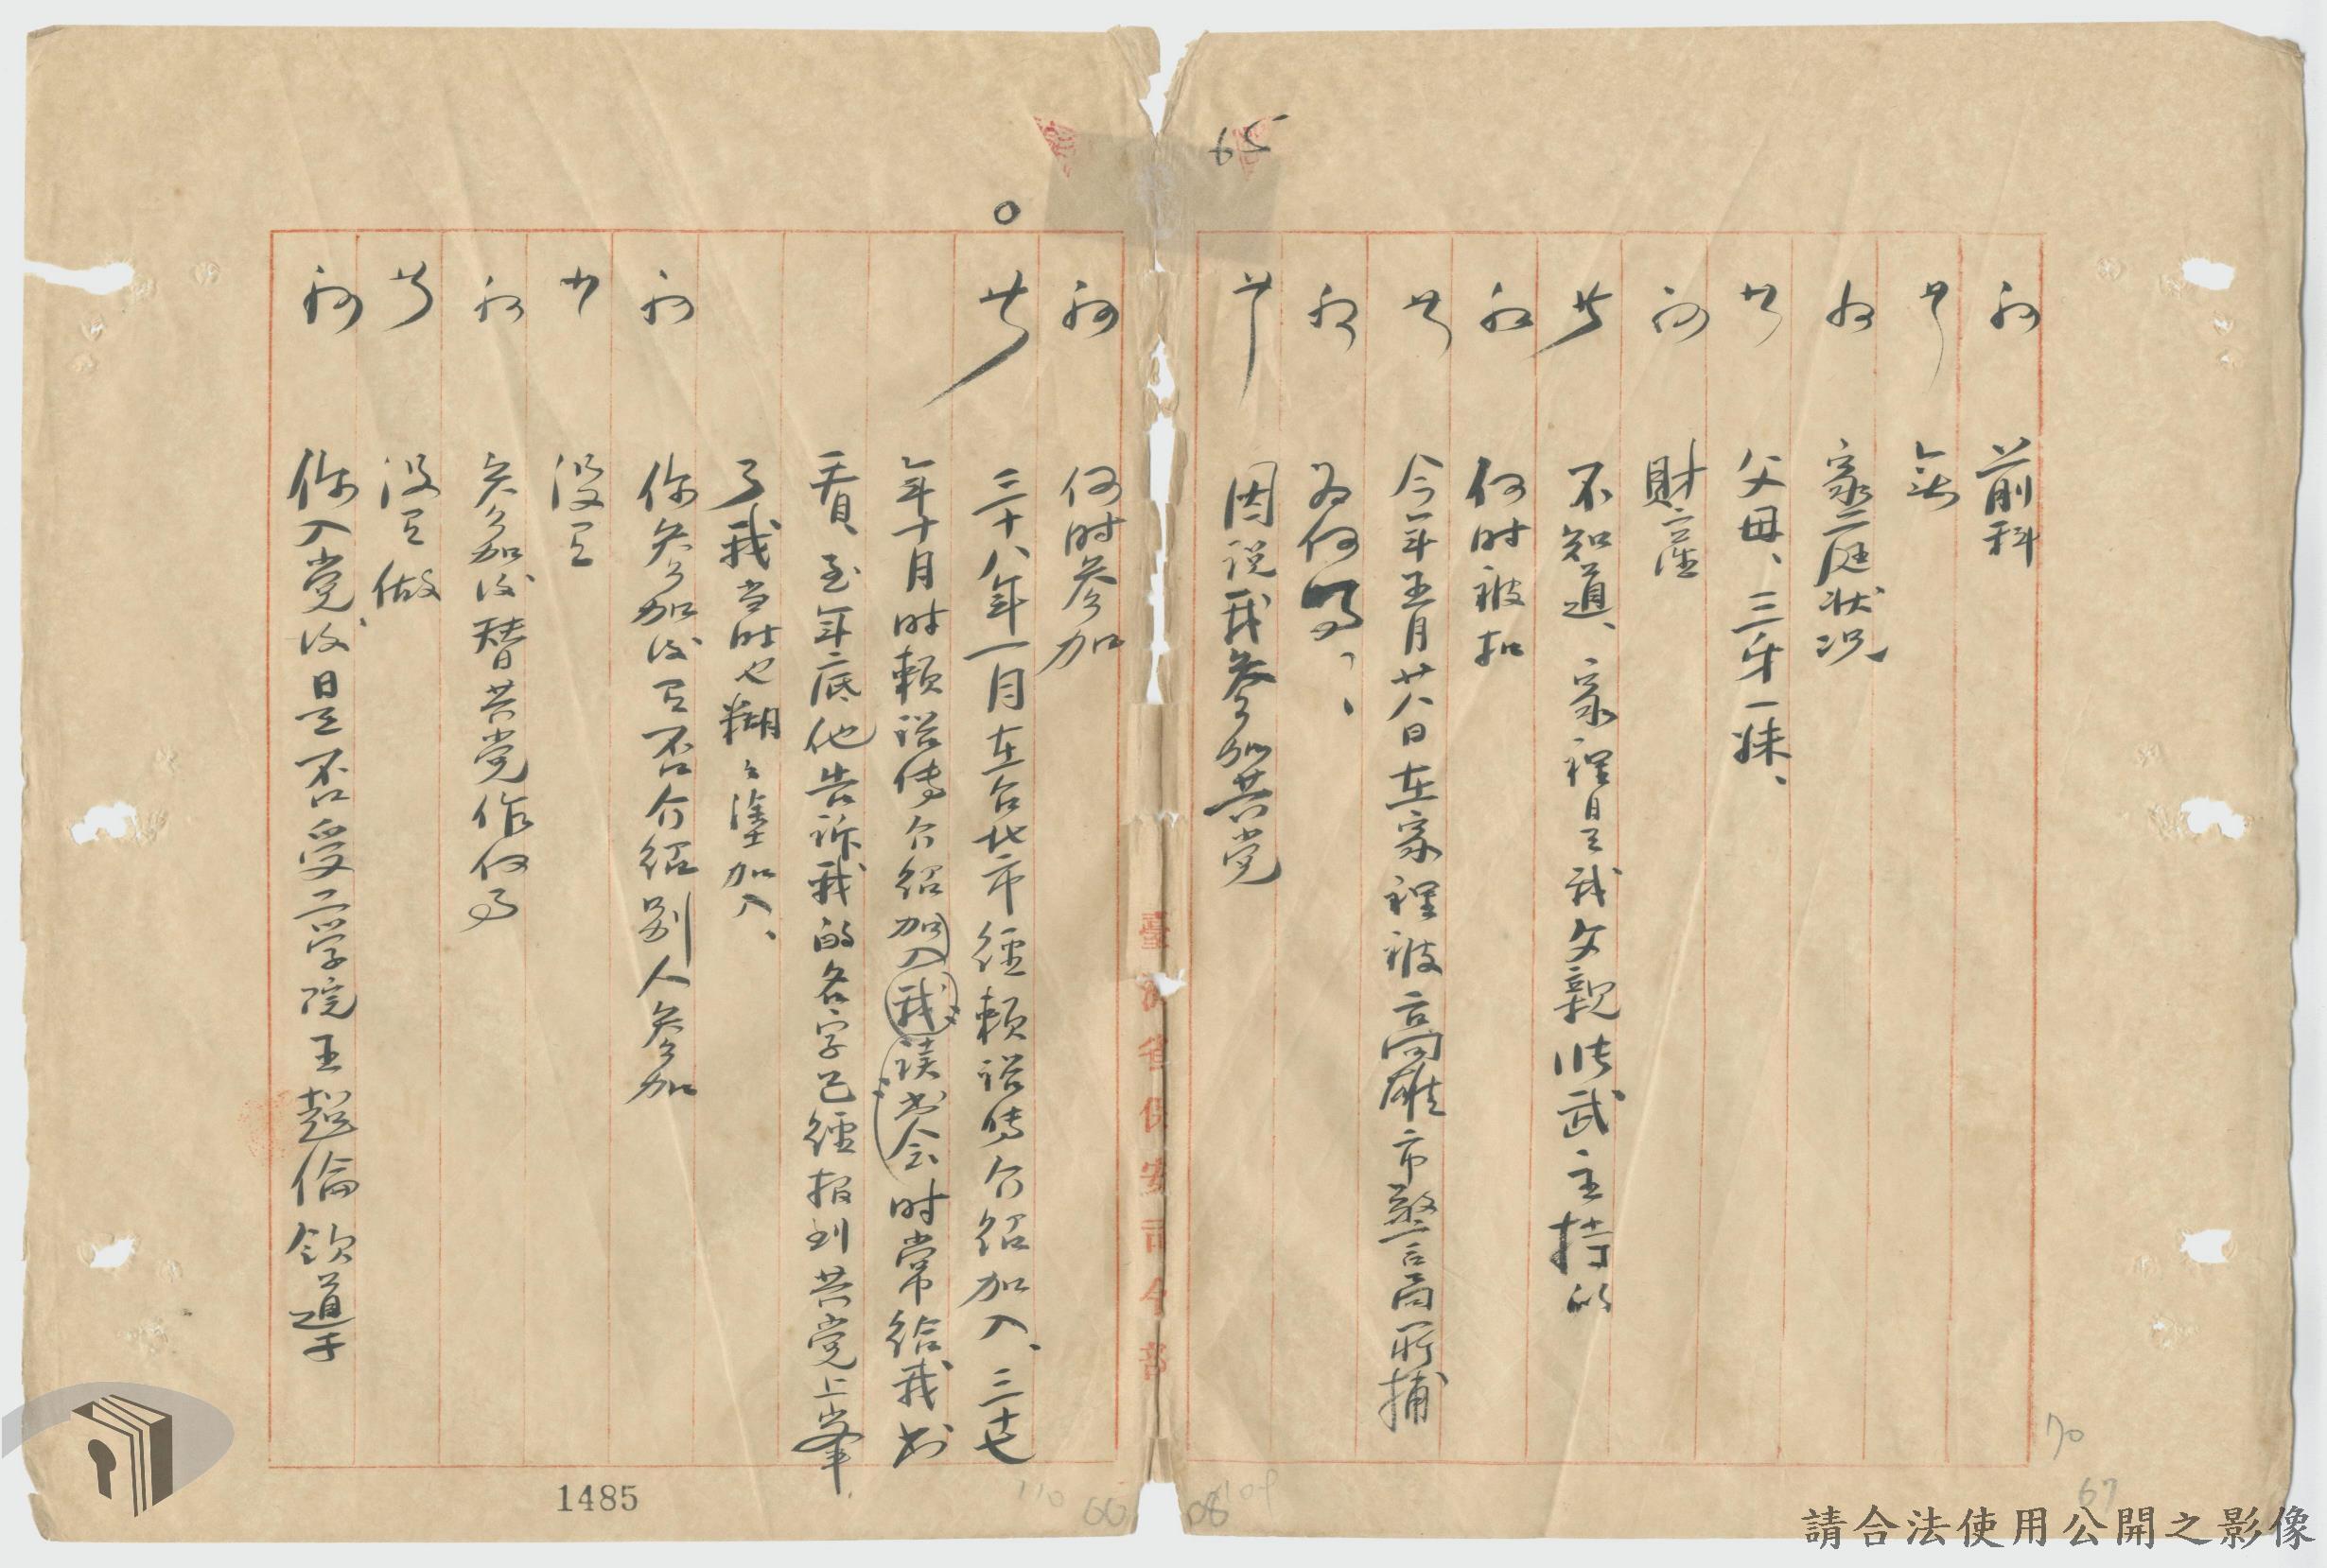 65
问 前科
答 無
问 家庭状况
答 父母、三弟一妹、
问 財產
答 不知道、家裡是我父親 武主持的
问 何时被扣
答 今年五月廿八日在家裡被高雄市警局所捕
问 为何事、
答 因说我參加共党
臺灣省保安司令部
问 何时參加
○
答 三十八年一月在台北市經賴裕傳介紹加入、三十七
年十月时賴裕傳介紹加入我读书会时常给我书
看、至年底他告诉我的名字已經报到共党上峯
了我当时也糊々塗加入、
问 你參加后是否介紹别人參加
答 没有
问 參加后替共党作何事
答 没有做
问 你入党后是否受工学院王超倫領導
1485
110
66
08
109
70
67
請合法使用公開之影像